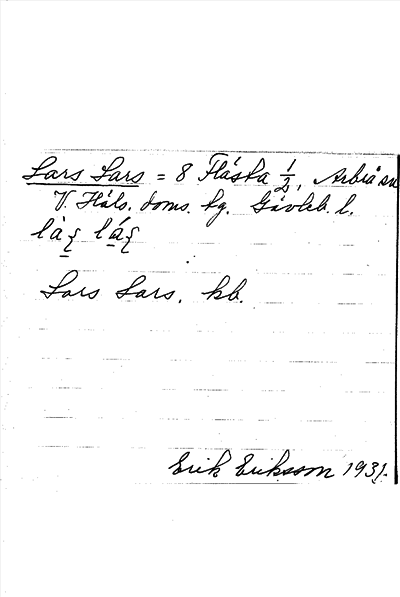 Lars Lars = 8 Flästa 1/2, Arbrå sn
V. Häls. doms. hg. Gävleb. l.
Lars Lars. kb.
Erik Eriksson 1931.